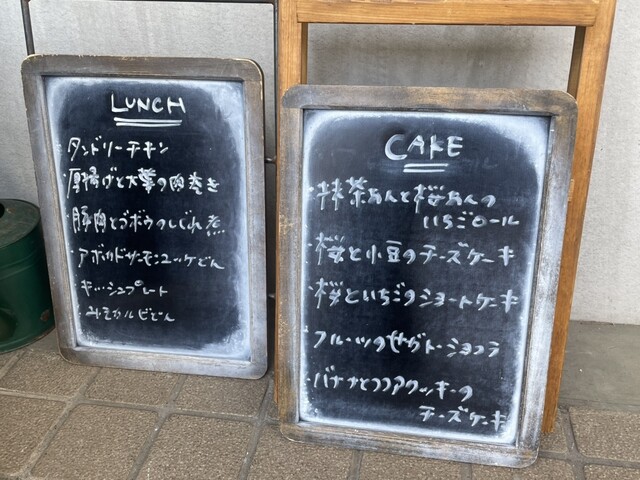 LUNCH
・タンドリーチキン
・厚揚げと大葉の肉巻き
・豚肉とゴボウのしぐれ煮
・アボカドサーモンユッケどん
・キッシュプレート
・みそカルビどん
CAKE
・抹茶あんと桜あんの
いちごロール
・桜と小豆のチーズケーキ
・桜といちごのショートケーキ
・フルーツの
・バナナとココアクッキーの
チーズケーキ